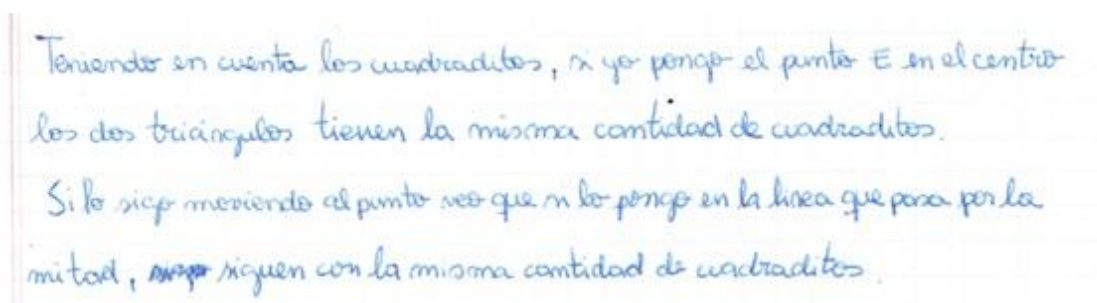 Teniendo en cuenta los cuadraditos, si yo pongo el punto E en el centro
los dos triángulos tienen la misma cantidad de cuadraditos.
Si lo sigo moviendo al punto veo que si lo pongo en la linea que pasa por la
mitad, siguen con la misma cantidad de cuadraditos.